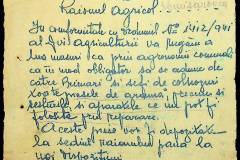 Raionul Agricol
In conformitate cu ordinul No 1412/941
al Dvi agriculturii va rugăm a
lua masuri ca prin agronomii comunali
ca in mod obligator să se adune de
catre Primari si sefi de colhozuri
toate piesele de arama, precum si
și aparatele ce nu pot fi
folosite prin reparare.
Aceste piese vor fi depozitate
la sediul raionului pana la
noi dispozitiuni